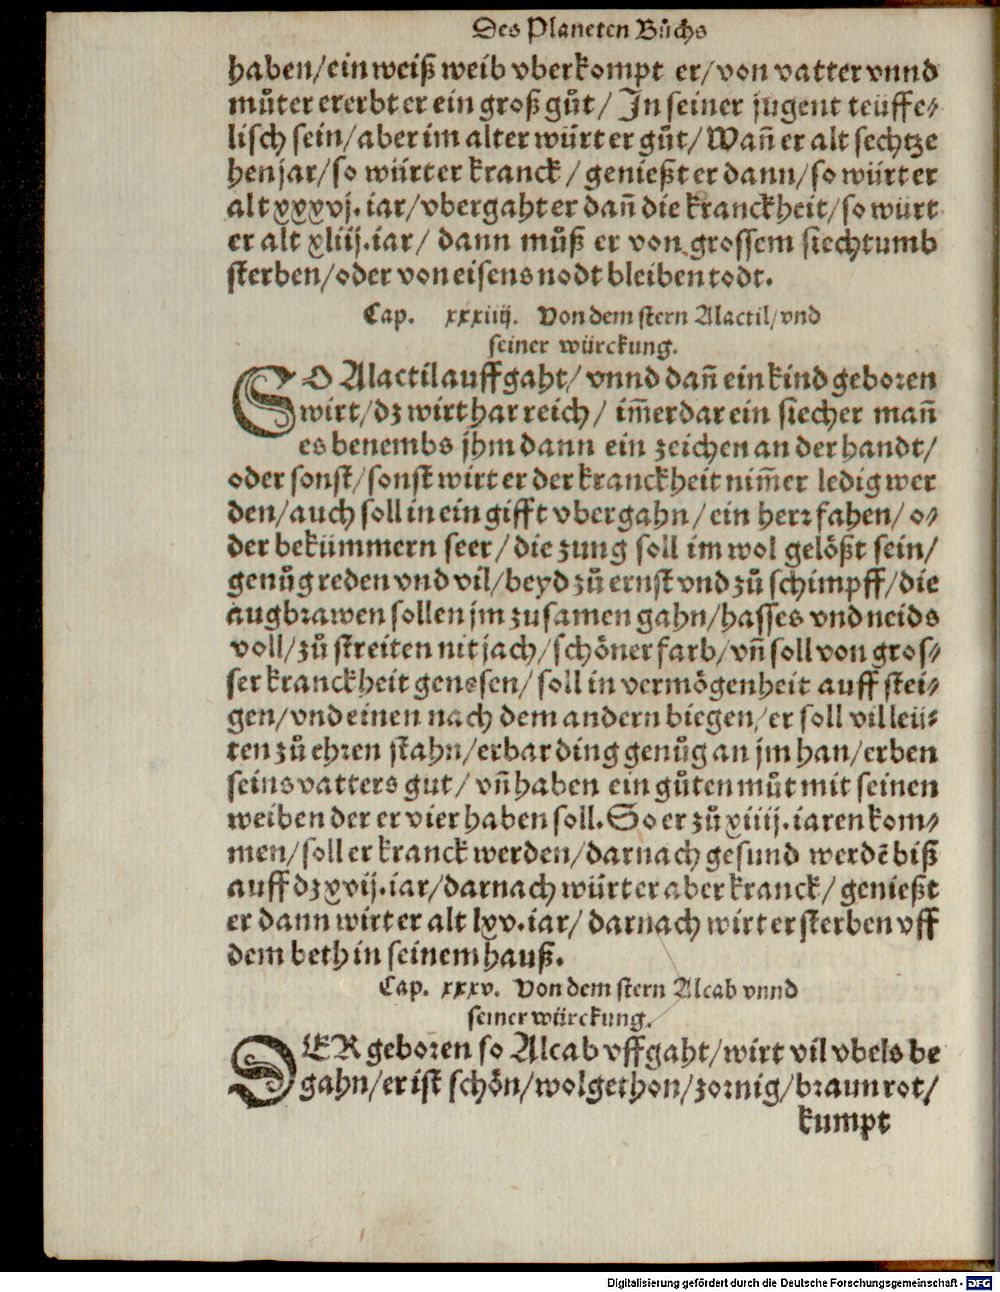 Des Planeten Bůchs
haben/ein weiß weib vberkompt er/von vatter vnnd
můter ererbt er ein groß gůt/ In seiner jugent teüffe⸗
lisch sein/aber im alter würt er gůt/ Wañ er alt sechtze
hen jar/so würt er kranck/ genießt er dann/so würt er
alt xxxvj. iar/vbergaht er dañ die kranckheit/so würt
er alt xliij.iar/ dann můß er von grossem siechtumb
sterben/oder von eisens nodt bleiben todt.
Cap. xxxiiij. Von dem stern Alactil/vnd
seiner würckung.
SO Alactil auffgaht/ vnnd dañ ein kind geboren
wirt/dz wirt har reich/ im̃erdar ein siecher mañ
es benembs jhm dann ein zeichen an der handt/
oder sonst/sonst wirt er der kranckheit nim̃er ledig wer
den/auch soll in ein gifft vbergahn/ein herz fahen/ o⸗
der bekümmern seer/die zung soll im wol gelößt sein/
genůg reden vnd vil/beyd zů ernst vnd zů schimpff/die
augbrawen sollen jm zusamen gahn/hasses vnd neids
voll/zů streiten nit jach/schöner farb/vñ soll von gros⸗
ser kranckheit genesen/ soll in vermögenheit auff stei⸗
gen/vnd einen nach dem andern biegen/er soll vil leü⸗
ten zů ehren stahn/erbar ding genůg an jm han/erben
seins vatters gut/ vñ haben ein gůten můt mit seinen
weiben der er vier haben soll. So er zů xiiij.iaren kom⸗
men/soll er kranck werden/darnach gesund werdẽ biß
auff dz xvij.iar/darnach würt er aber kranck/ genießt
er dann wirt er alt lxv.iar/ darnach wirt er sterben vff
dem beth in seinem hauß.
Cap. xxxv. Von dem stern Alcab vnnd
seiner würckung.
DER geboren so Alcab vffgaht/wirt vil vbels be
gahn/er ist schön/wolgethon/zornig/braunrot/
kumpt
Digitalisierung gefördert durch die Deutsche Forschungsgemeinschaft - DFG